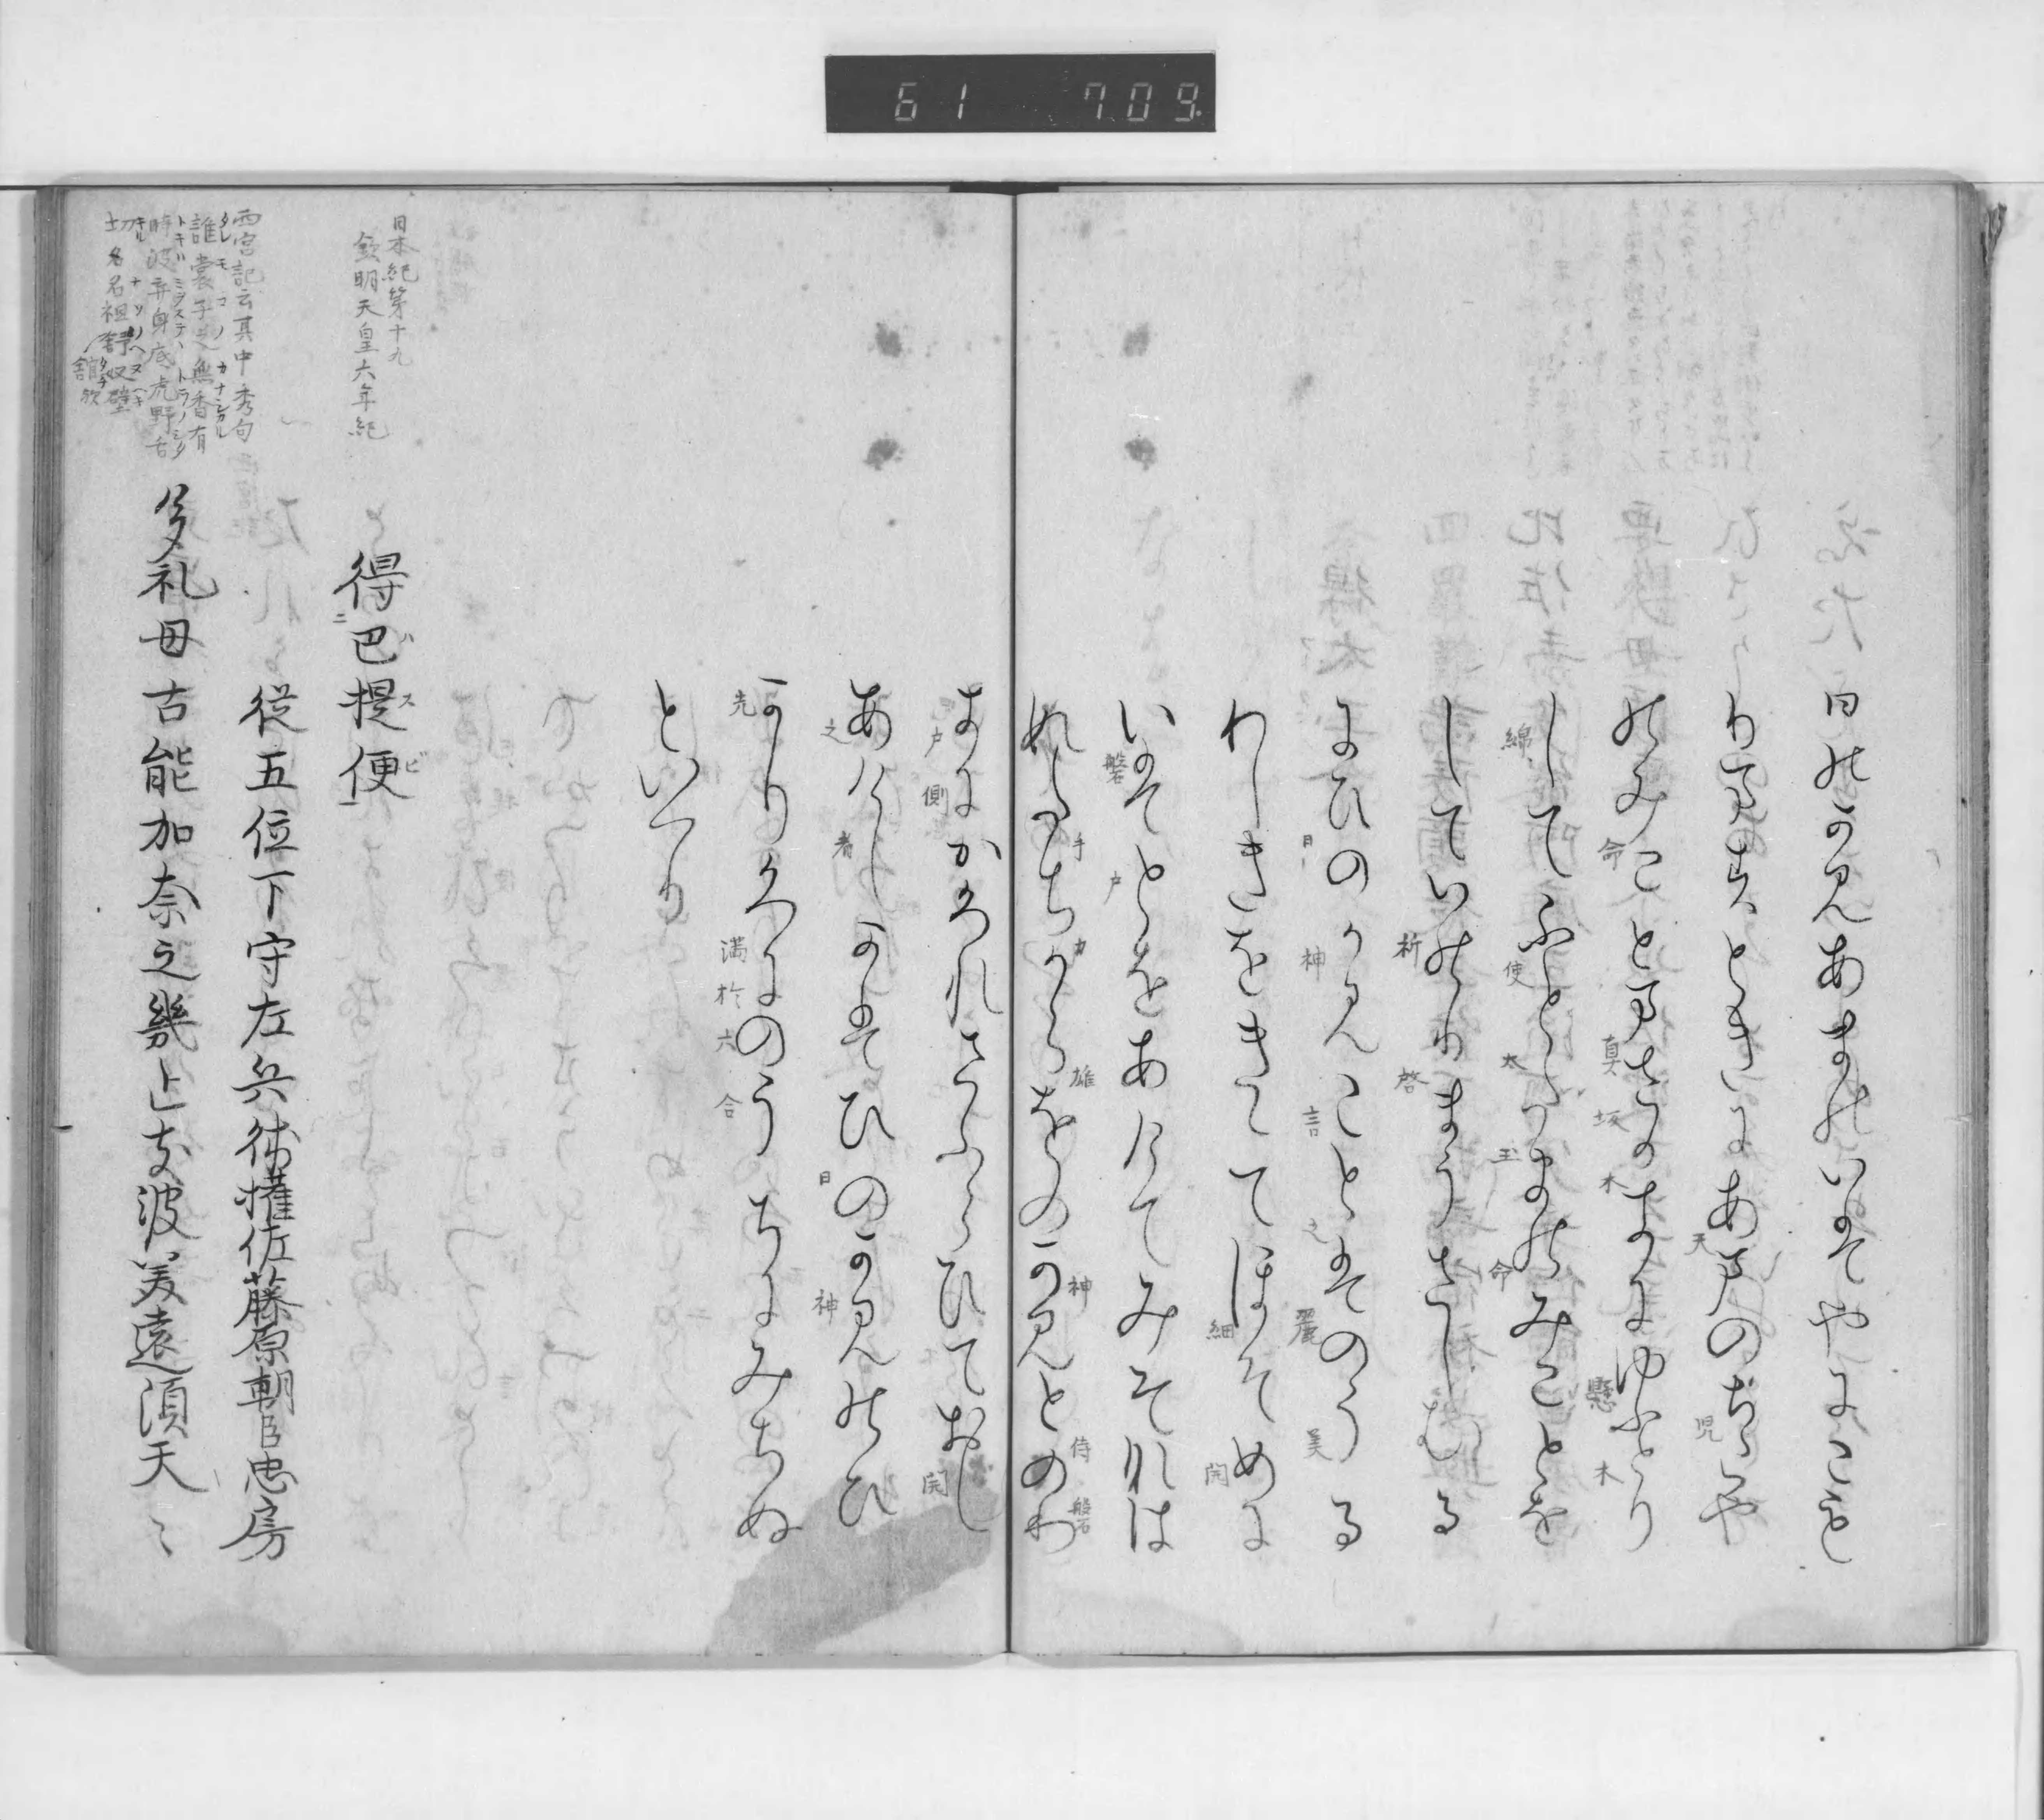 61 709
日のかみあまのいはやにこも
りますときにあめのこや
のみことまさかきにゆふとり
してふとたまのみことを
していのりまうさしむる
にひのかみことはのうる
わしきをきゝてほそめに
いはとをあけてみそれは
めしたちからをのかみとのわ
きにかくれさふらひておし
あけしかはひのかみのひ
かりくにのうちにみちぬ
といへり
綿
命
天
児
真
坂
木
懸
木
使
太
玉
命
祈
啓
日
神
言
之
麗
美
細
開
磐
戸
手
力
雄
神
侍
磐
戸
側
開
之
者
日
神
光
満
於
六
合
日本紀第十九
欽明天皇六年紀
得巴提便
ニ ハ ス ビ
従五位下守左兵衛権佐藤原朝臣忠房
多礼母古能加奈之幾止支波美遠須天ミ
西宮記云其中秀句
誰裳子之無香有
時波弃身底虎野舌
切名名祖
奴壁